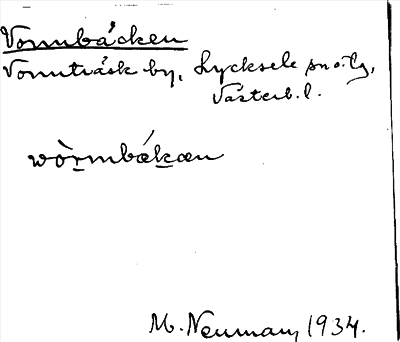 Vormbäcken
Vormträsk by, Lycksele sn o. lg,
Västerb. l.
wòrmbækæn
M. Neuman, 1934.